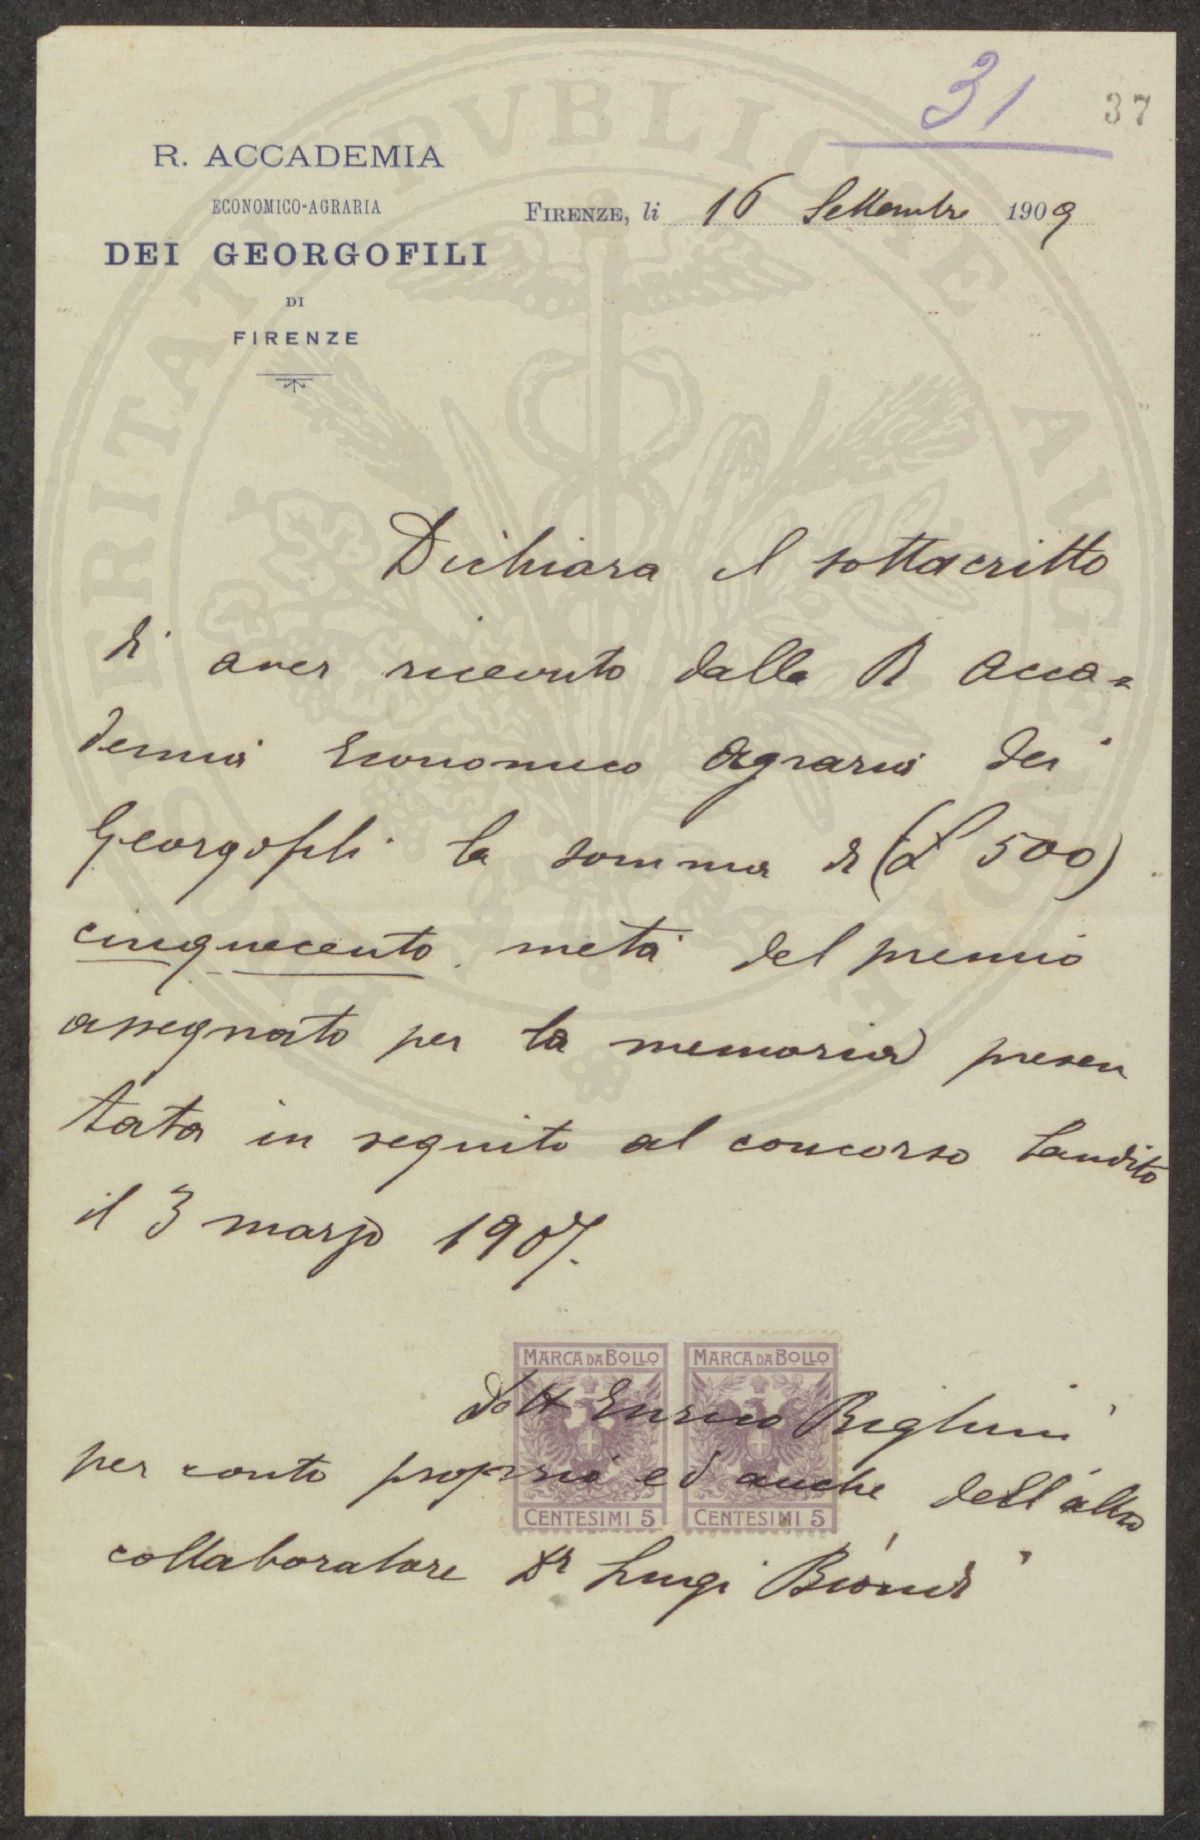 31
37
R. ACCADEMIA
ECONOMICO-AGRARIA
DEI GEORGOFILI
DI
FIRENZE
FIRENZE, li 16 Settembre 1909
Dichiara il sottoscritto
di aver ricevuto dalla R Acca=
demia Economico Agraria dei
Georgofili la somma di (£ 500)
cinquecento metà del premio
assegnato per la memoria presen
tata in seguito al concorso bandito
il 3 marzo 1907.
MARCA DA BOLLO MARCA DA BOLLO
Dott Enrico
per conto proprio ed anche dell'altro
CENTESIMI 5 CENTESIMI 5
collaboratore Dr Luigi Biondi
PROSPERITATI PVBLICAE AVGENDAE